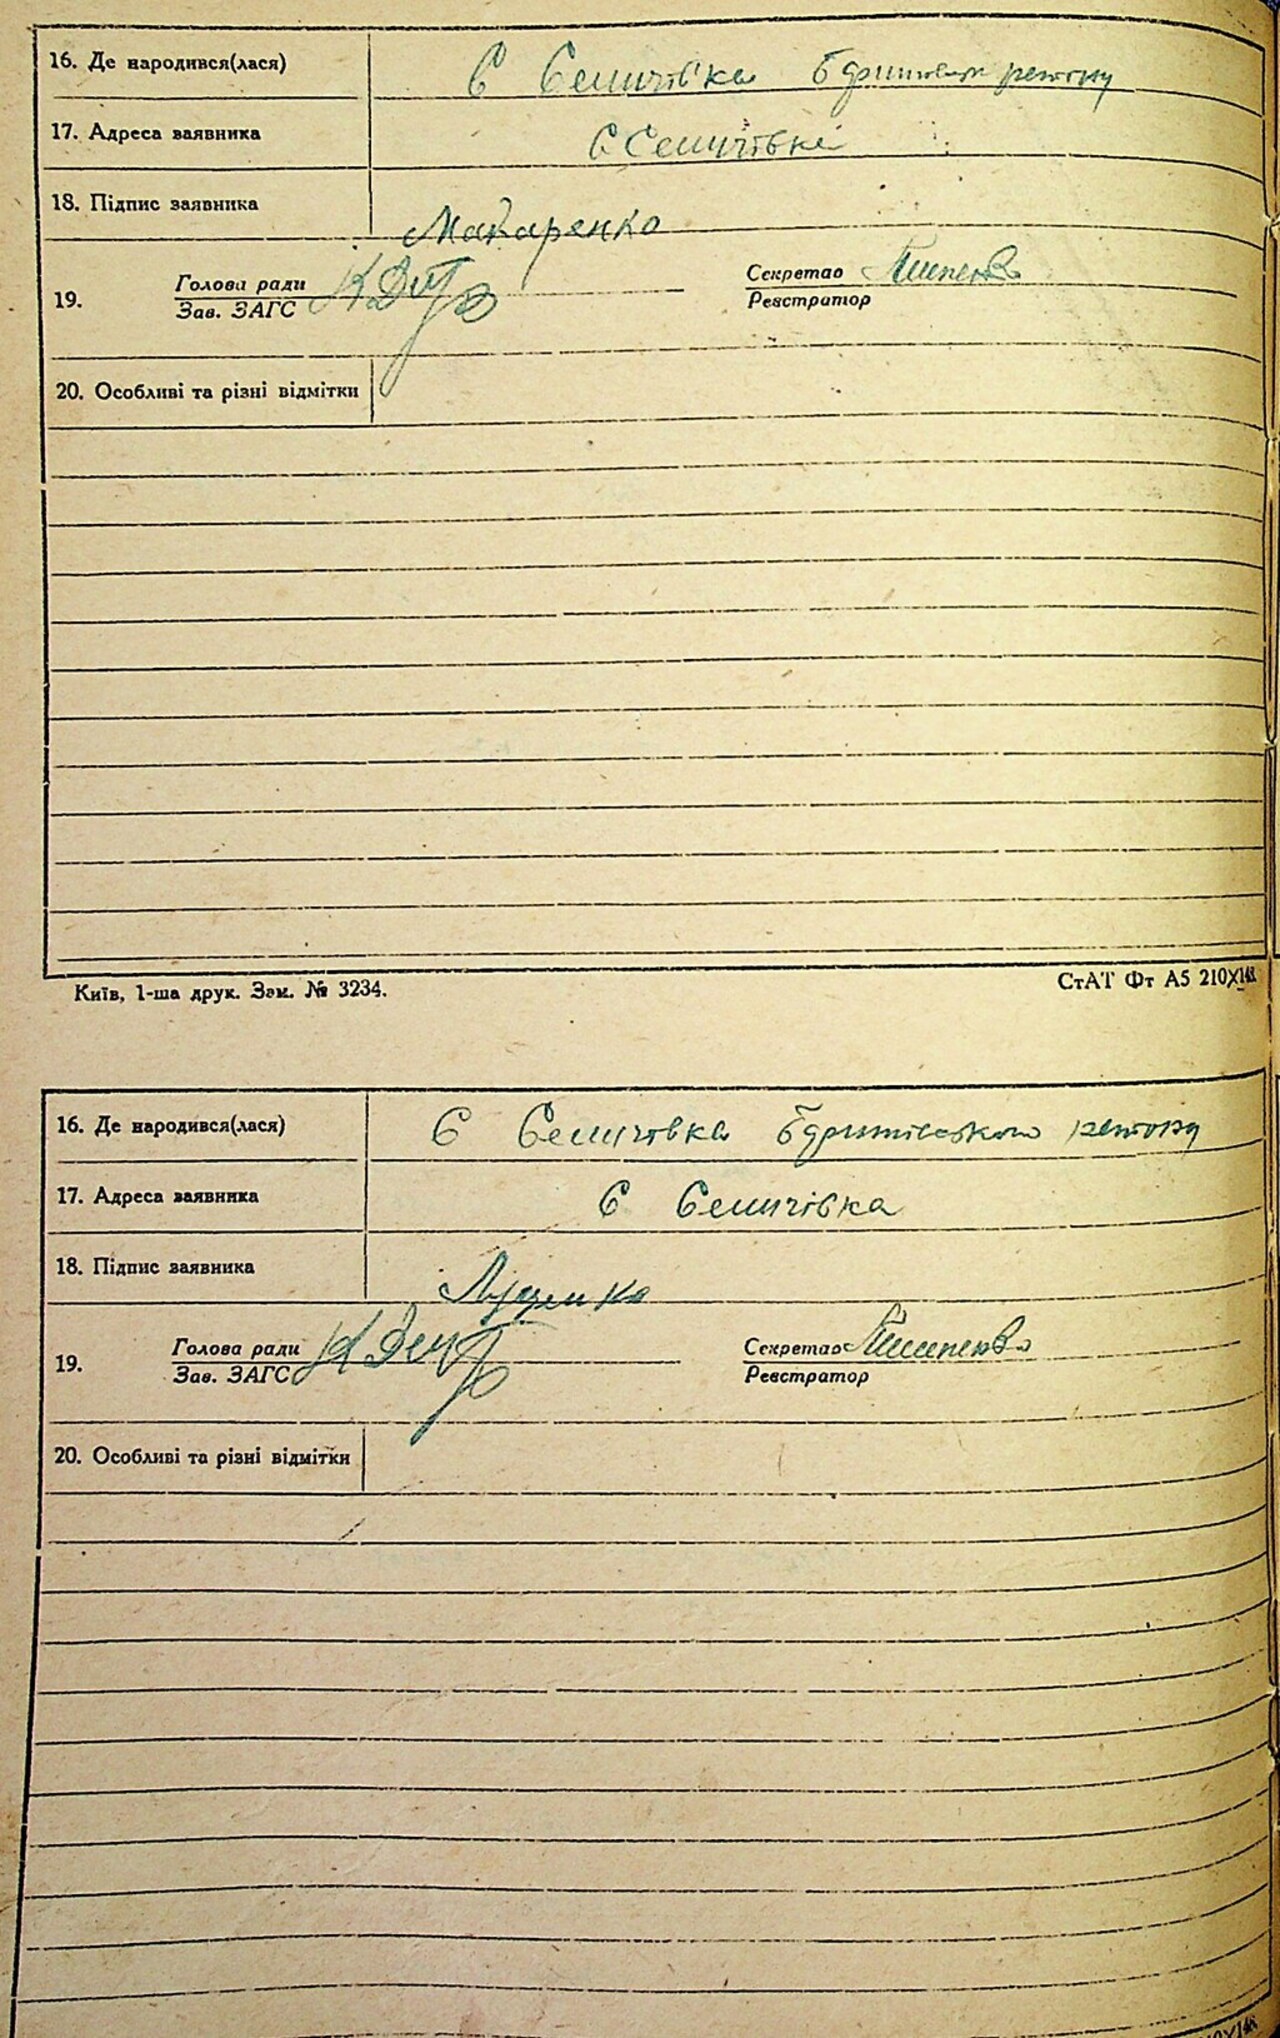 16. Де народився(лася) С Семичівка району
17. Адреса заявника С Семичівка
18. Підпис заявника Макаренко
19. Голова ради Секретар Пилипенко
Зав. ЗАГС Реєстратор
20. Особливі та різні відмітки
Київ, 1-ша друк. Зам. № 3234. СтАТ Фт А5 210X148
16. Де народився(лася) С Семичівка району
17. Адреса заявника С Семичівка
18. Підпис заявника
19. Голова ради Секретар Пилипенко
Зав. ЗАГС Реєстратор
20. Особливі та різні відмітки